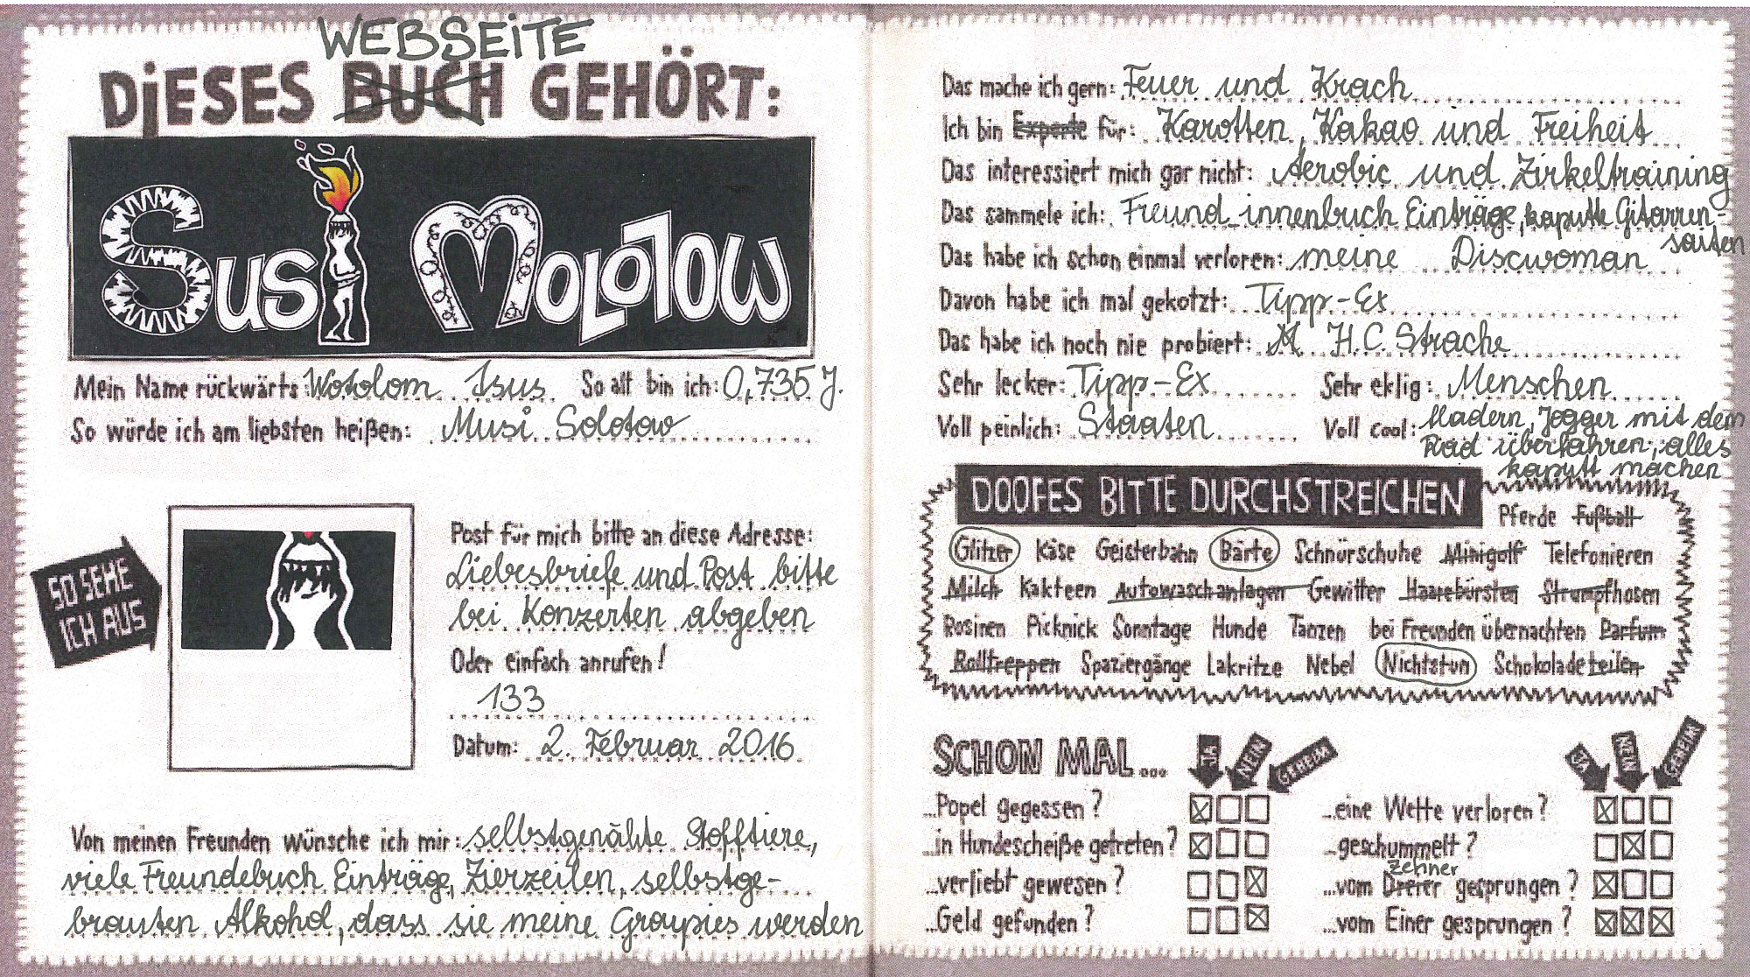 WEBSEITE
DIESES BUCH GEHÖRT:
SUSI MOLOTOW
Mein Name rückwärts: Wotolom Isus So alt bin ich: 0,735 J.
So würde ich am liebsten heißen: Musi Solotow
SO SEHE
ICH AUS
Post für mich bitte an diese Adresse:
Liebesbriefe und Post bitte
bei Konzerten abgeben
Oder einfach anrufen!
133
Datum: 2. Februar 2016
Von meinen Freunden wünsche ich mir: selbstgenähte Stofftiere,
viele Freundebuch Einträge, Zierzeilen, selbstge-
brauten Alkohol, dass sie meine Groupies werden
Das mache ich gern: Feuer und Krach
Ich bin Experte für: Karotten, Kakao und Freiheit
Das interessiert mich gar nicht: Aerobic und Zirkeltraining
Das sammele ich: Freund_innenbuch Einträge, kaputte Gitarren-
saiten
Das habe ich schon einmal verloren: meine Discwoman
Davon habe ich mal gekotzt: Tipp-Ex
Das habe ich noch nie probiert: H.C. Strache
Sehr lecker: Tipp-Ex Sehr eklig: Menschen
Voll peinlich: Staaten Voll cool: Madern, Jogger mit dem
Rad überfahren, alles
kaputt machen
DOOFES BITTE DURCHSTREICHEN
Pferde Fußball
Glitzer Käse Geisterbahn Bärte Schnürschuhe Minigolf Telefonieren
Milch Kakteen Autowaschanlagen Gewitter Haarebürsten Strumpfhosen
Rosinen Picknick Sonntage Hunde Tanzen bei Freunden übernachten Parfum
Rolltreppen Spaziergänge Lakritze Nebel Nichtstun Schokolade teilen
SCHON MAL... JA NEIN GEHEIM JA NEIN GEHEIM
...Popel gegessen? ...eine Wette verloren?
...in Hundescheiße getreten? ...geschummelt?
zehner
...verliebt gewesen? ...vom Dreier gesprungen?
...Geld gefunden? ...vom Einer gesprungen?